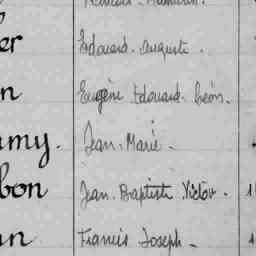 er Edouard. Auguste.
n Eugène Edouard. Léon.
my. Jean. Marie.
bon Jean. Baptiste Victor. 1
un Francis Joseph. 1